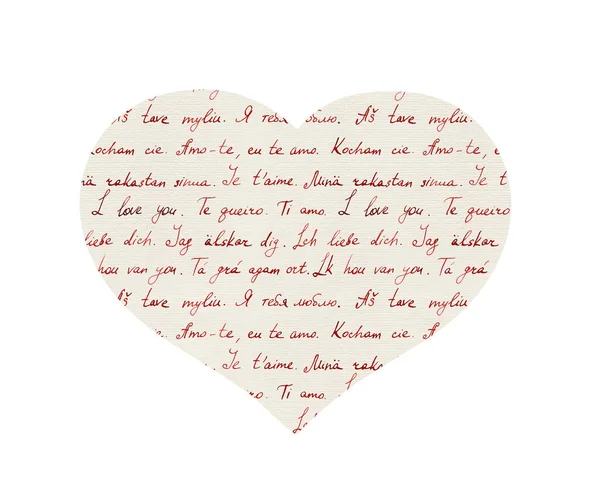 š tave myliu. Я тебя люблю. Aš tave myliu.
ocham cie. Amo-te, eu te amo. Kocham cie. Amo-te, e
nä rakastan sinua. Je t'aime. Minä rakastan sinua. Je t
I love you. Te queiro. Ti amo. I love you. Te queiro
liebe dich. Jag älskar dig. Ich liebe dich. Jag älskar
hou van you. Tá grá agam ort. Ik hou van you. Tá grá
Aš tave myliu. Я тебя люблю. Aš tave myliu
Amo-te, eu te amo. Kocham cie. Am
Je t'aime. Minä rak
Ti amo.